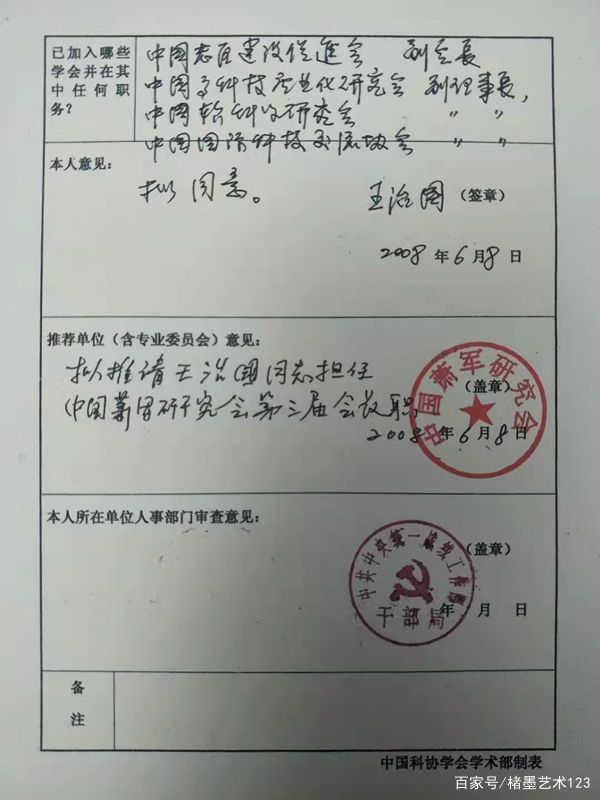 已加入哪些
学会并在其
中任何职
务?
中国老区建设促進会 副会長
中国高科技产业化研究会 副理事長,
中国 科 研究会 〃 〃
中国国际科技交流协会 〃 〃
本人意见:
拟同意。
王治国 (签章)
2008 年 6 月 8 日
推荐单位(含专业委员会)意见:
拟推请王治国同志担任 (盖章)
中国萧军研究会第三届会长职
2008 年 6 月 8 日
中国萧军研究会
本人所在单位人事部门审查意见:
(盖章)
中共中央统一战线工作部
干部局
年 月 日
备
注
中国科协学会学术部制表
百家号/楮墨艺术123